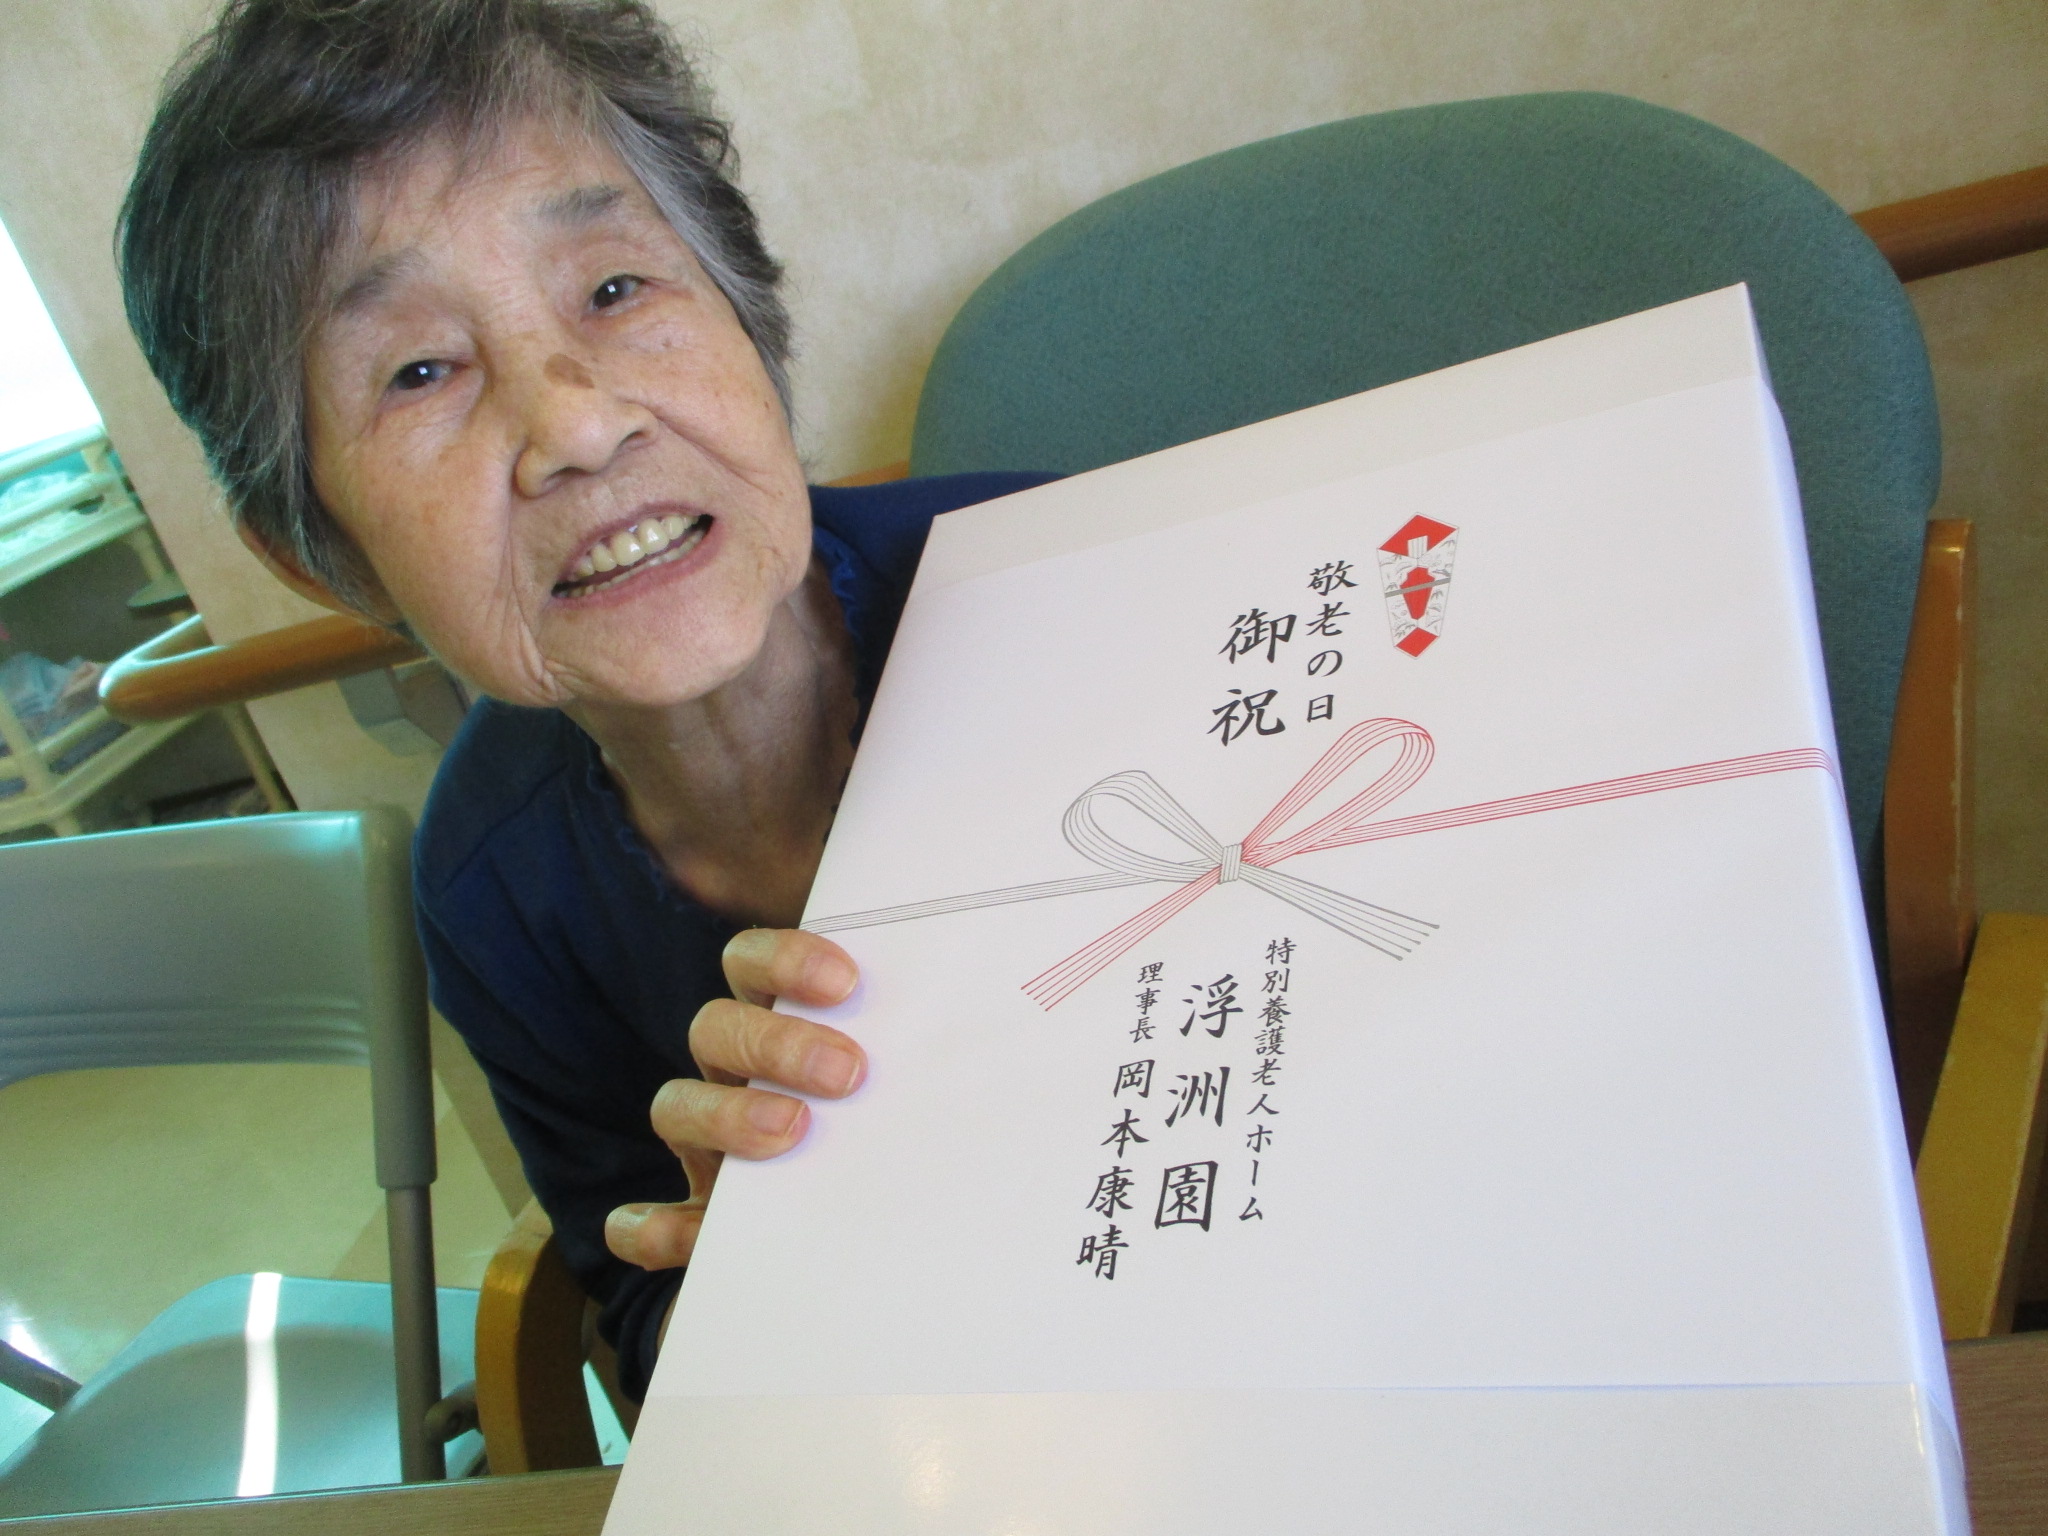 敬老の日
御祝
特別養護老人ホーム
浮洲園
理事長 岡本康晴